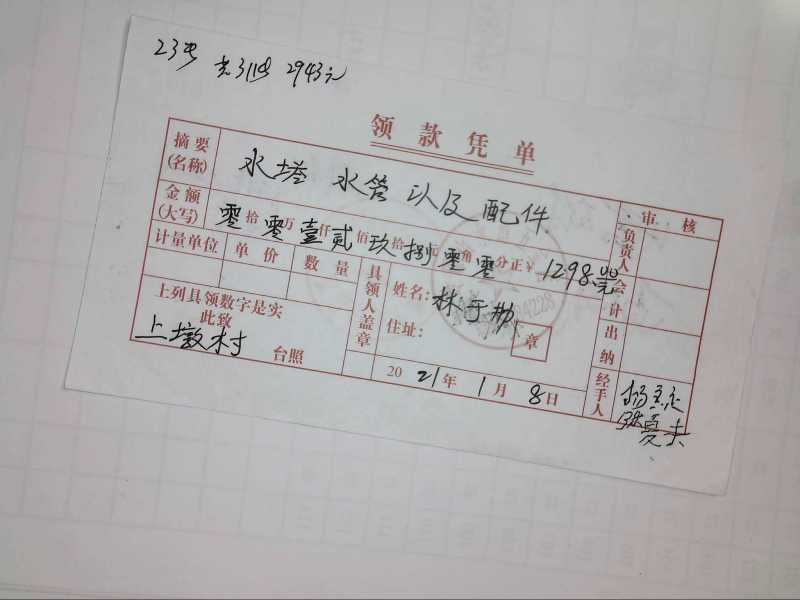 23号 共311号 2943元
领款凭单
摘要(名称) 水塔 水管 以及配件
审核
金额(大写) 零拾零万壹仟贰佰玖拾捌元零角零分正¥ 1298元
计量单位 单价 数量
上列具领数字是实
此致
上墩村 台照
具领人盖章
姓名:林于
住址: 章
2021年1月8日
负责人
会计
出纳
经手人